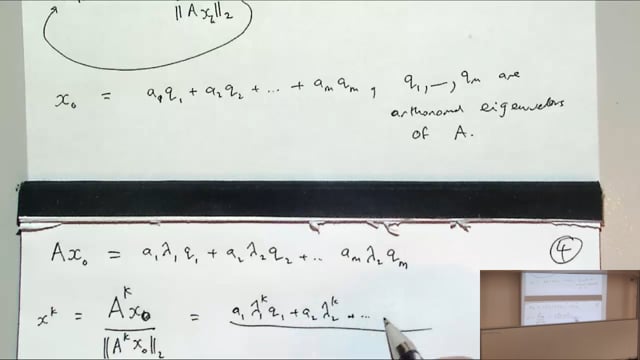 ‖Ax₂‖₂
x₀ = a₁q₁ + a₂q₂ + ... + aₘqₘ, q₁, —, qₘ are
orthonormal eigenvectors
of A.
Ax₀ = a₁λ₁q₁ + a₂λ₂q₂ + .. aₘλ₂qₘ
④
xᵏ = Aᵏx₀ / ‖Aᵏx₀‖₂ = a₁λ₁ᵏq₁ + a₂λ₂ᵏ + ...